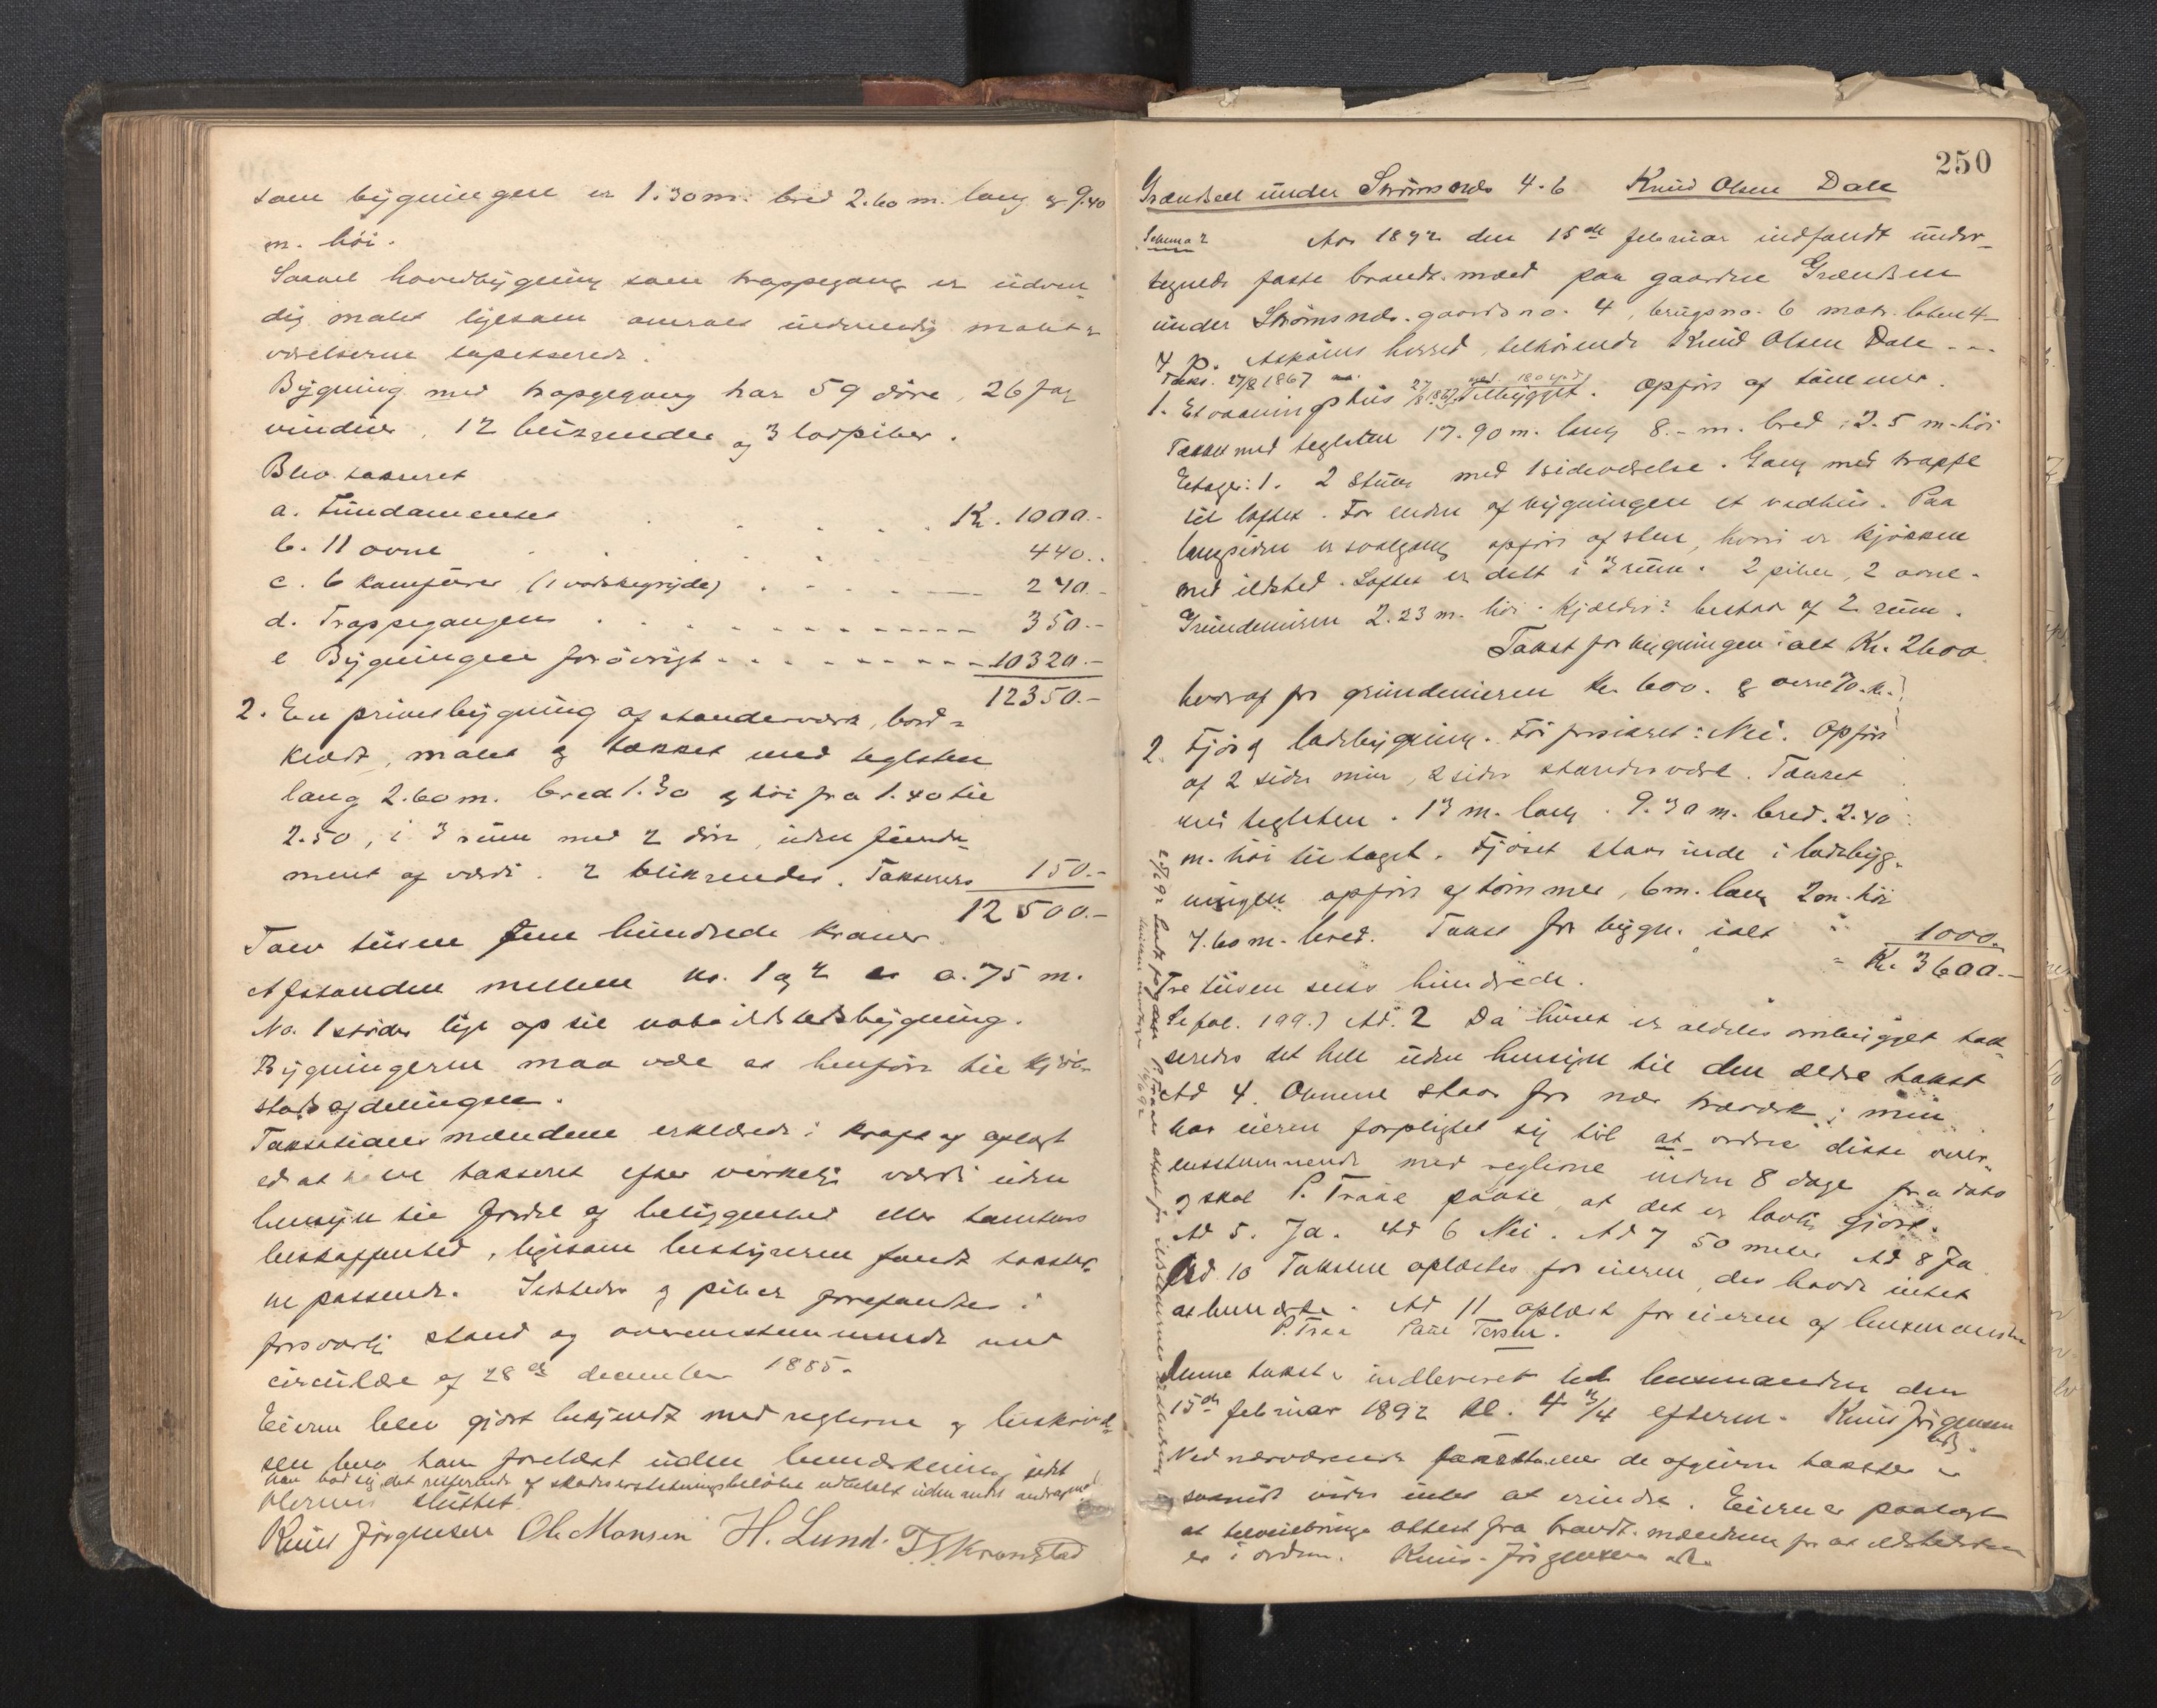 som bygningen er 1.30 m. bred 2.60 m. lang og 9.40
m. höi.
Saavel hovedbygning som trappegang er udven-
dig malet ligesom overalt indvendig malet &
værelserne tapetserede.
Bygning med trapgegang har 59 döre, 26 fag
vinduer, 12 blikrender og 3 lodpiber.
Blev taxeret
a. Fundamentet Kr. 1000.-
b. 11 ovne 440.-
c. 6 komfurer (1 vaskegryde) 240.-
d. Trappegangen 350.-
e Bygningen forövrigt 10320.-
12350.-
2. En privetbygning af stænderværk, bord-
klædt, malet og tækket med teglsten
lang 2.60 m. bred 1.30 og höi fra 1.40 til
2.50, i 3 rum med 2 dör, uden funda-
ment af værdi. 2 blikrender. Taxeres 150.-
12500.-
Tolv tusen fem hundrede kroner.
Afstanden mellem no. 1 og 2 er 0.75 m.
No. 1 stöder lige op til nabo ildstedsbygning.
Bygningerne maa være at henföre til kjöb-
stadsafdelingen.
Taxationsmændene erklærede i kraft af aflagt
ed at have taxseret efter virkelig værdi uden
hensyn til fordel af beliggenhed eller tomtens
beskaffenhed, ligesom bestyreren fandt taxster-
ne passende. Ildsteder og piber forefandtes i
forsvarlig stand og overensstemmende med
circulære af 28de december 1885.
Eieren blev gjort bekjendt med reglerne og beskrivel-
sen blev ham forelæst uden bemærkning idet
han bad sig det resterende af skadeserstatningsbelöbet udbetalt uden andet andragende
Hermed sluttet.
Knud Jörgensen Ole Monsen H. Lund. T. S. Kronstad
250
Grændsen under Strömsnes 4.6 Knud Olsen Dale
Schema 2 Aar 1892 den 15de februar indfandt under-
tegnede faste brandt.mænd paa gaarden Grændsen
under Strömsnes. gaards no. 4, brugsno. 6 matr. löbenr 4
Askøens herred, tilhörende Knud Olsen Dale
Takst. 27/8 1867
1. Et vaaningshus Tilbygget. Opfört af tömmer.
Tækket med teglsten 17.90 m. lang 8.- m. bred, 2.5 m. höi
Etager: 1. 2 stuer med 1 sideværelse. Gang med trappe
til loftet. For enden af bygningen et vedhus. Paa
langsiden er svalgang opfört af sten, hvori er kjökken
med ildsted. Loftet er delt i 3 rum. 2 piber, 2 ovne.
Grundmuren 2.23 m. höi. Kjælder: bestaar af 2 rum.
Takst for bygningen i alt Kr. 2600
hvoraf for grundmuren kr. 600. & ovne 70. kr.
2. Fjös & ladebygning. För forsikret: Nei. Opfört
af 2 sider mur, 2 sider stænderværk. Tækket
med teglsten. 13 m. lang. 9.30 m. bred. 2.40
m. höi til taget. Fjöset staar inde i ladebyg-
ningen opfört af tömmer, 6 m. lang 2 m. höi
4.60 m. bred. Takst for bygn. ialt 1000.
Kr. 3600.-
Tre tusen seks hundrede.
Se fol. 199.) Ad. 2 Da huset er aldeles ombygget tak-
seredes det hele uden hensyn til den ældre takst
Ad 4. Ovnene staar for nær træværk; men
har eieren forpligtet sig til at ordne disse over-
ensstemmende med reglerne inden 8 dage fra dato
og skal P. Traae paase, at det er lovlig gjort.
Ad 5. Ja. Ad 6 Nei. Ad 7 50 meter Ad 8 Ja
Ad. 10 Taksten oplæstes for eieren, der havde intet
at bemærke. Ad 11 oplæst for eieren af lensmanden
P. Traa
Denne takst indleveret til lensmanden den
15de februar 1892 kl. 4 3/4 efterm. Knud Jörgensen
Ved nærværende de afgivne takster er
saavidt vides intet at erindre. Eieren er paalagt
at tilveiebringe attest fra brandt.mændene for at ildstederne
er i orden. Knud Jörgensen